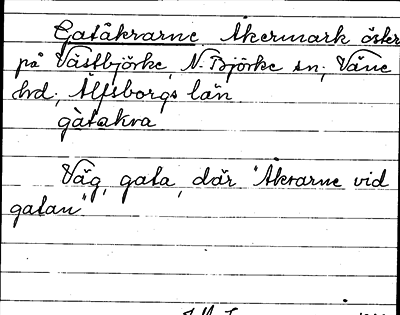 Gatåkrarne Åkermark öster
på Västbjörke, N. Björke sn; Väne
hd; Älfsborgs län
gàtakra
Väg, gata, där "Åkrarne vid
gatan"